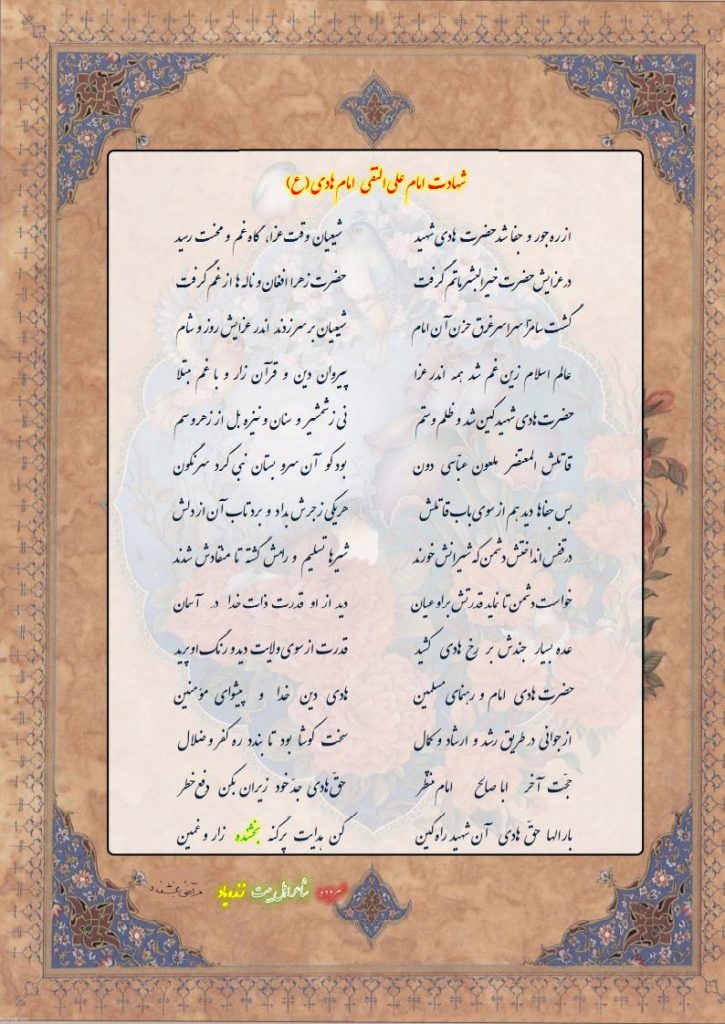 شهادت امام علی النقی امام هادی (ع)
از ره جور و جفا شد حضرت هادی شهید شیعیان وقت عزا، گاه غم و محنت رسید
در عزایش حضرت خیرالبشر ماتم گرفت حضرت زهرا افغان و ناله ها از غم گرفت
گشت سامرّا سراسر غرق حزن آن امام شیعیان بر سر زدند اندر عزایش روز و شام
عالم اسلام زین غم شد همه اندر عزا پیروان دین و قرآن زار و با غم مبتلا
حضرت هادی شهید کین شد و ظلم و ستم نی ز شمشیر و سنان و نیزه بل از زهر و سم
قاتلش المعتضر ملعون عبّاسی دون بود کو آن سرو بستان نبی کرد سرنگون
بس جفاها دید هم از سوی باب قاتلش هر یکی زجرش بداد و برد تاب آن از دلش
در قفس انداختش دشمن که شیرانش خورند شیرها تسلیم و رامش گشته تا منقادش شدند
خواست دشمن تا نماید قدرتش بر او عیان دید از او قدرت ذات خدا در آسمان
عده بسیار جندش بر رخ هادی کشید قدرت از سوی ولایت دید و رنگ او پرید
حضرت هادی امام و رهنمای مسلمین هادی دین خدا و پیشوای مؤمنین
از جوانی در طریق رشد و ارشاد و کمال سخت کوشا بود تا بندد ره کفر و ضلال
حجّت آخر ابا صالح امام منتظر حقّ هادی جدّ خود زیران بکن دفع خطر
بارالها حقّ هادی آن شهید راه کین کن هدایت پرگنه بخشنده زار و غمین
شاعر اهل بیت زنده یاد